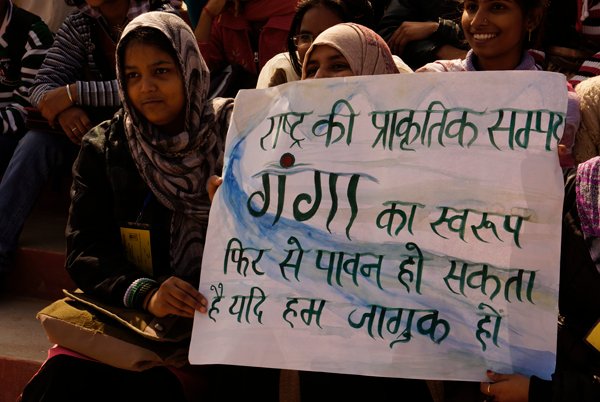 राष्ट्र की प्राकृतिक सम्पदा
गंगा का स्वरूप
फिर से पावन हो सकता
है यदि हम जागुक हो